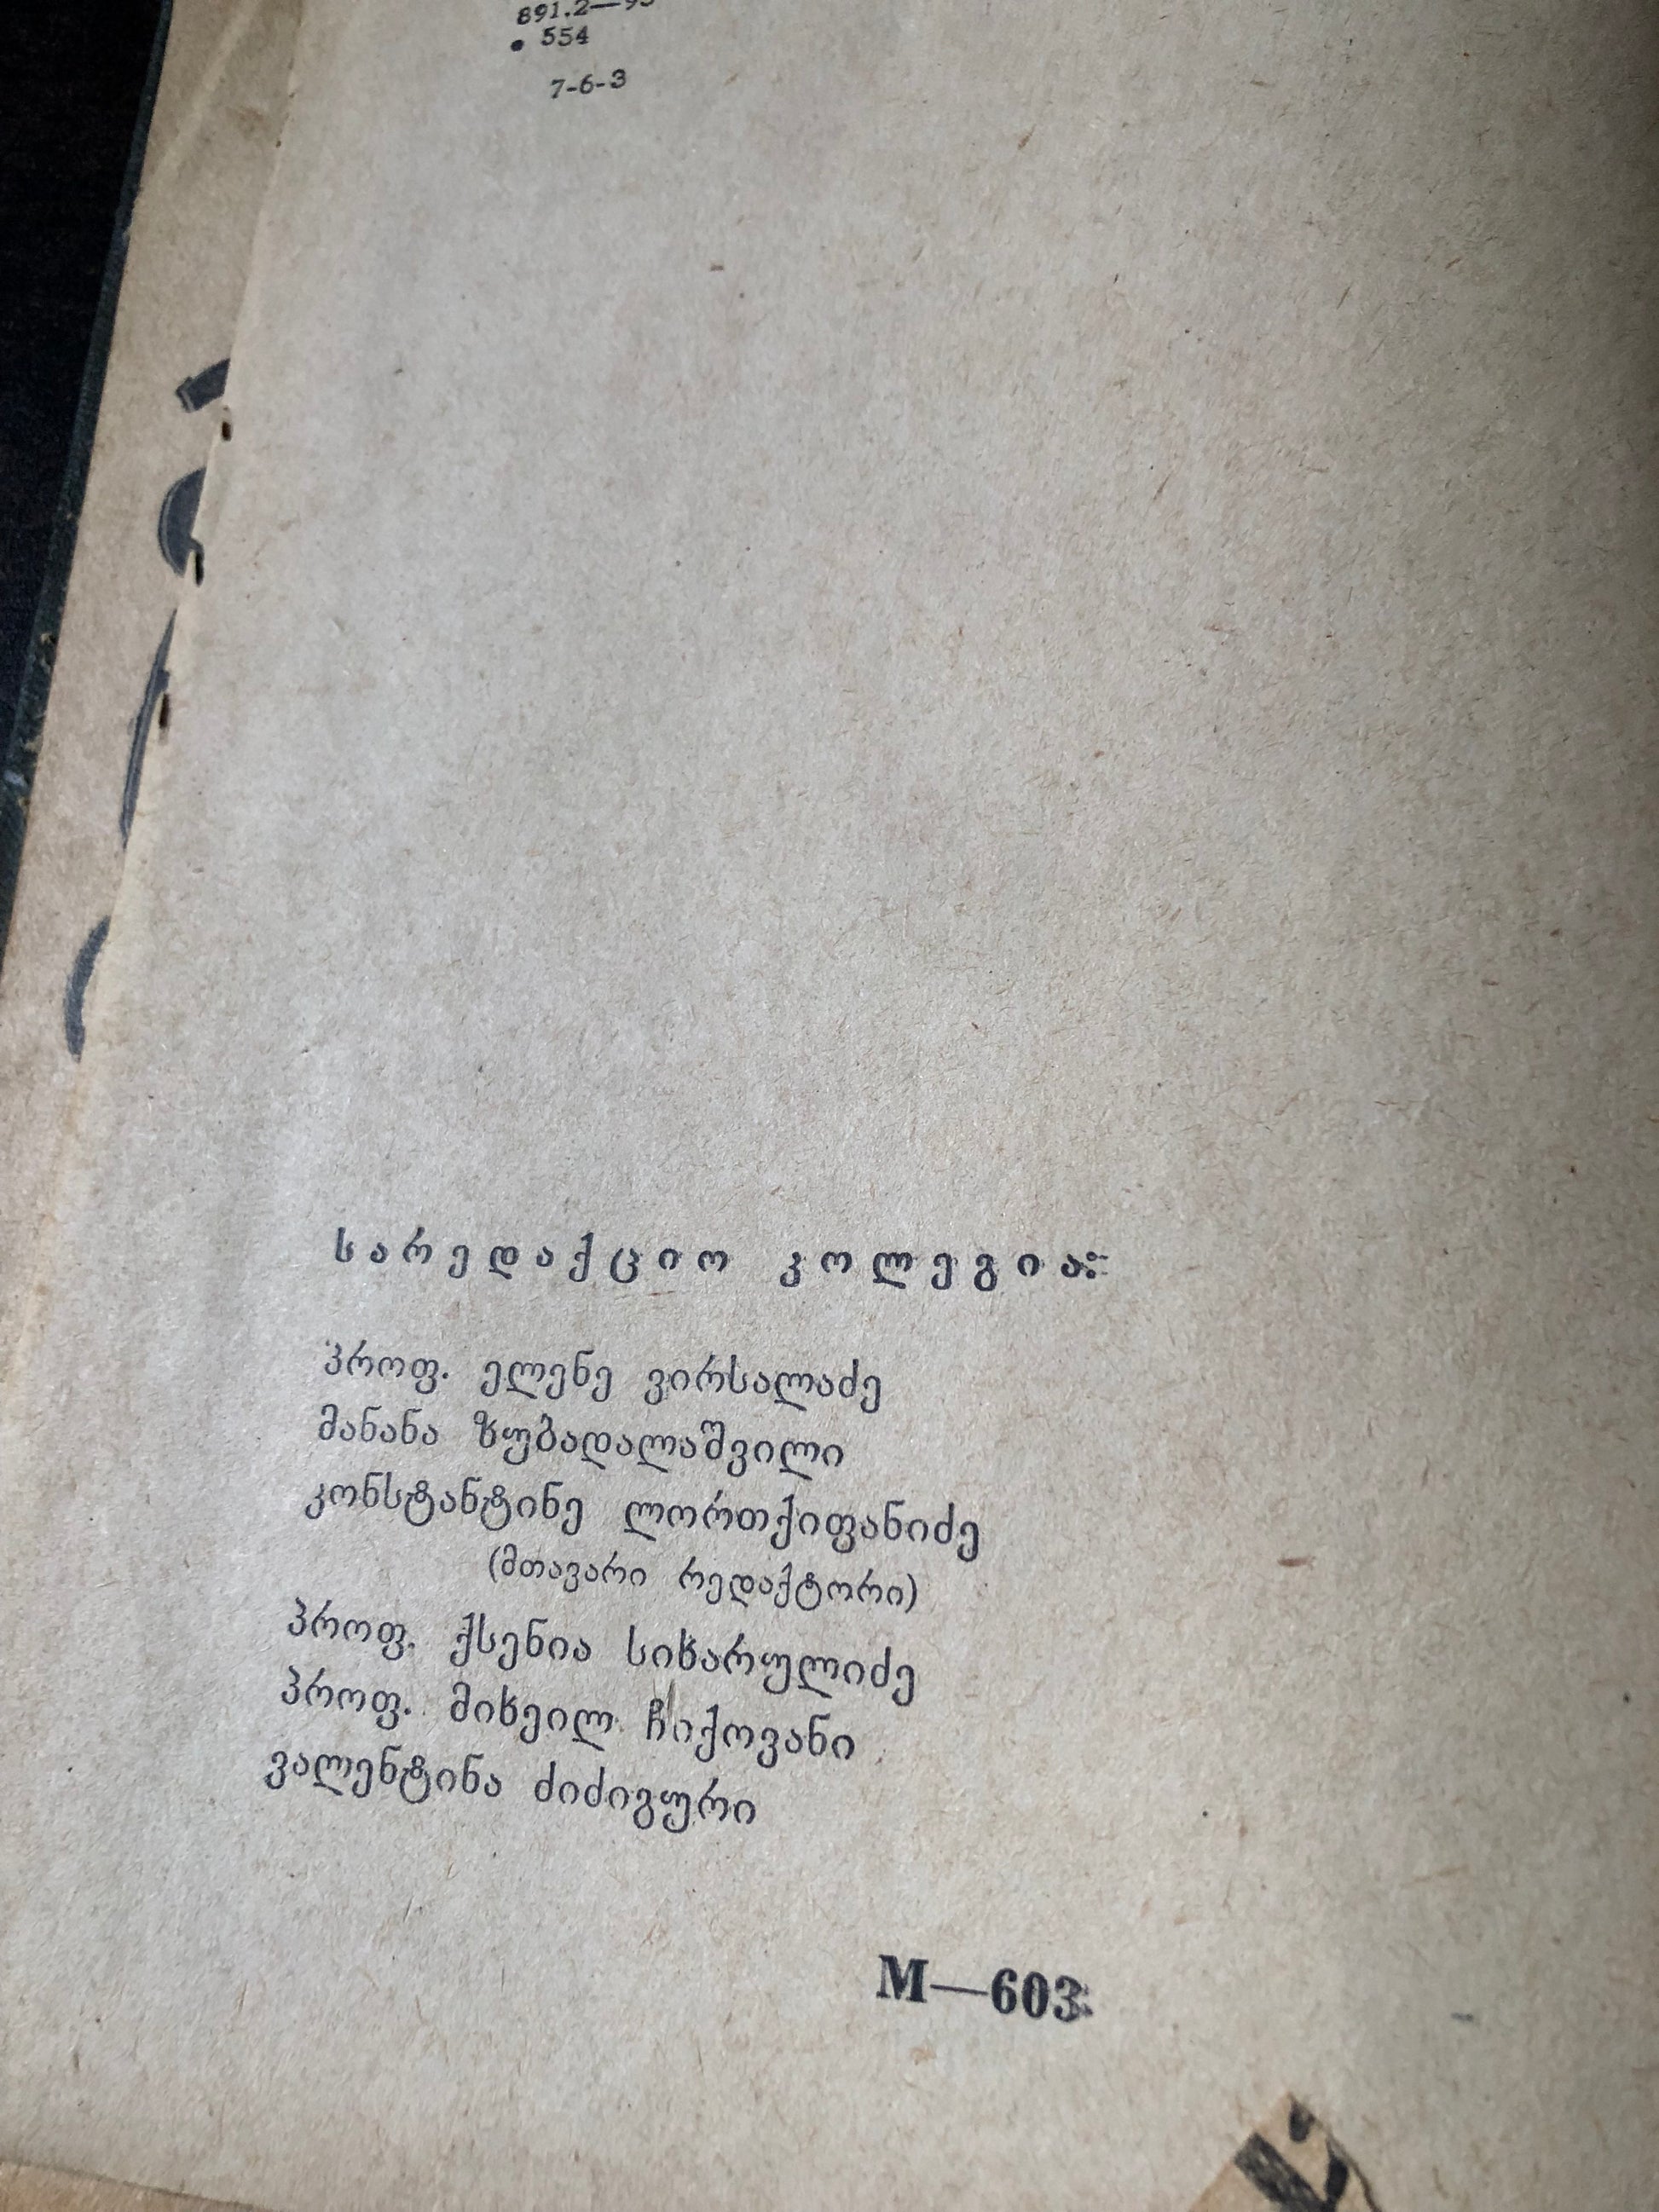 554
7-6-3
სარედაქციო კოლეგია:
პროფ. ელენე ვირსალაძე
მანანა ზუბადალაშვილი
კონსტანტინე ლორთქიფანიძე
(მთავარი რედაქტორი)
პროფ. ქსენია სიხარულიძე
პროფ. მიხეილ ჩიქოვანი
ვალენტინა ძიძიგური
M—603